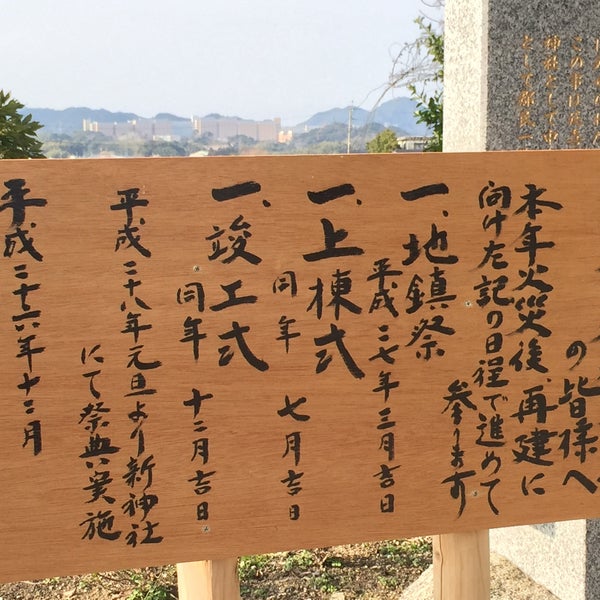 の皆様へ
本年火災後、再建に
向け左記の日程で進めて
参ります
一、地鎮祭
平成二七年三月吉日
一、上棟式
同年 七月吉日
一、竣工式
同年 十二月吉日
平成二十八年元旦より新神社
にて祭典実施
平成二十六年十二月